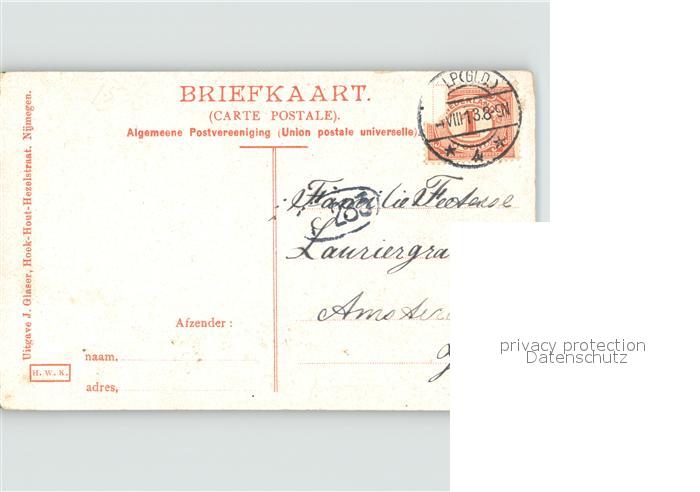 BRIEFKAART.
(CARTE POSTALE).
Algemeene Postvereeniging (Union postale universelle).
LP(GLD.)
VIII 13.8-9N
4
1
Familie
285
Lauriergra
Amster
Afzender:
naam.
adres,
Uitgave J. Glaser, Hoek-Hout-Hezelstraat. Nijmegen.
H. W. K.
privacy protection
Datenschutz